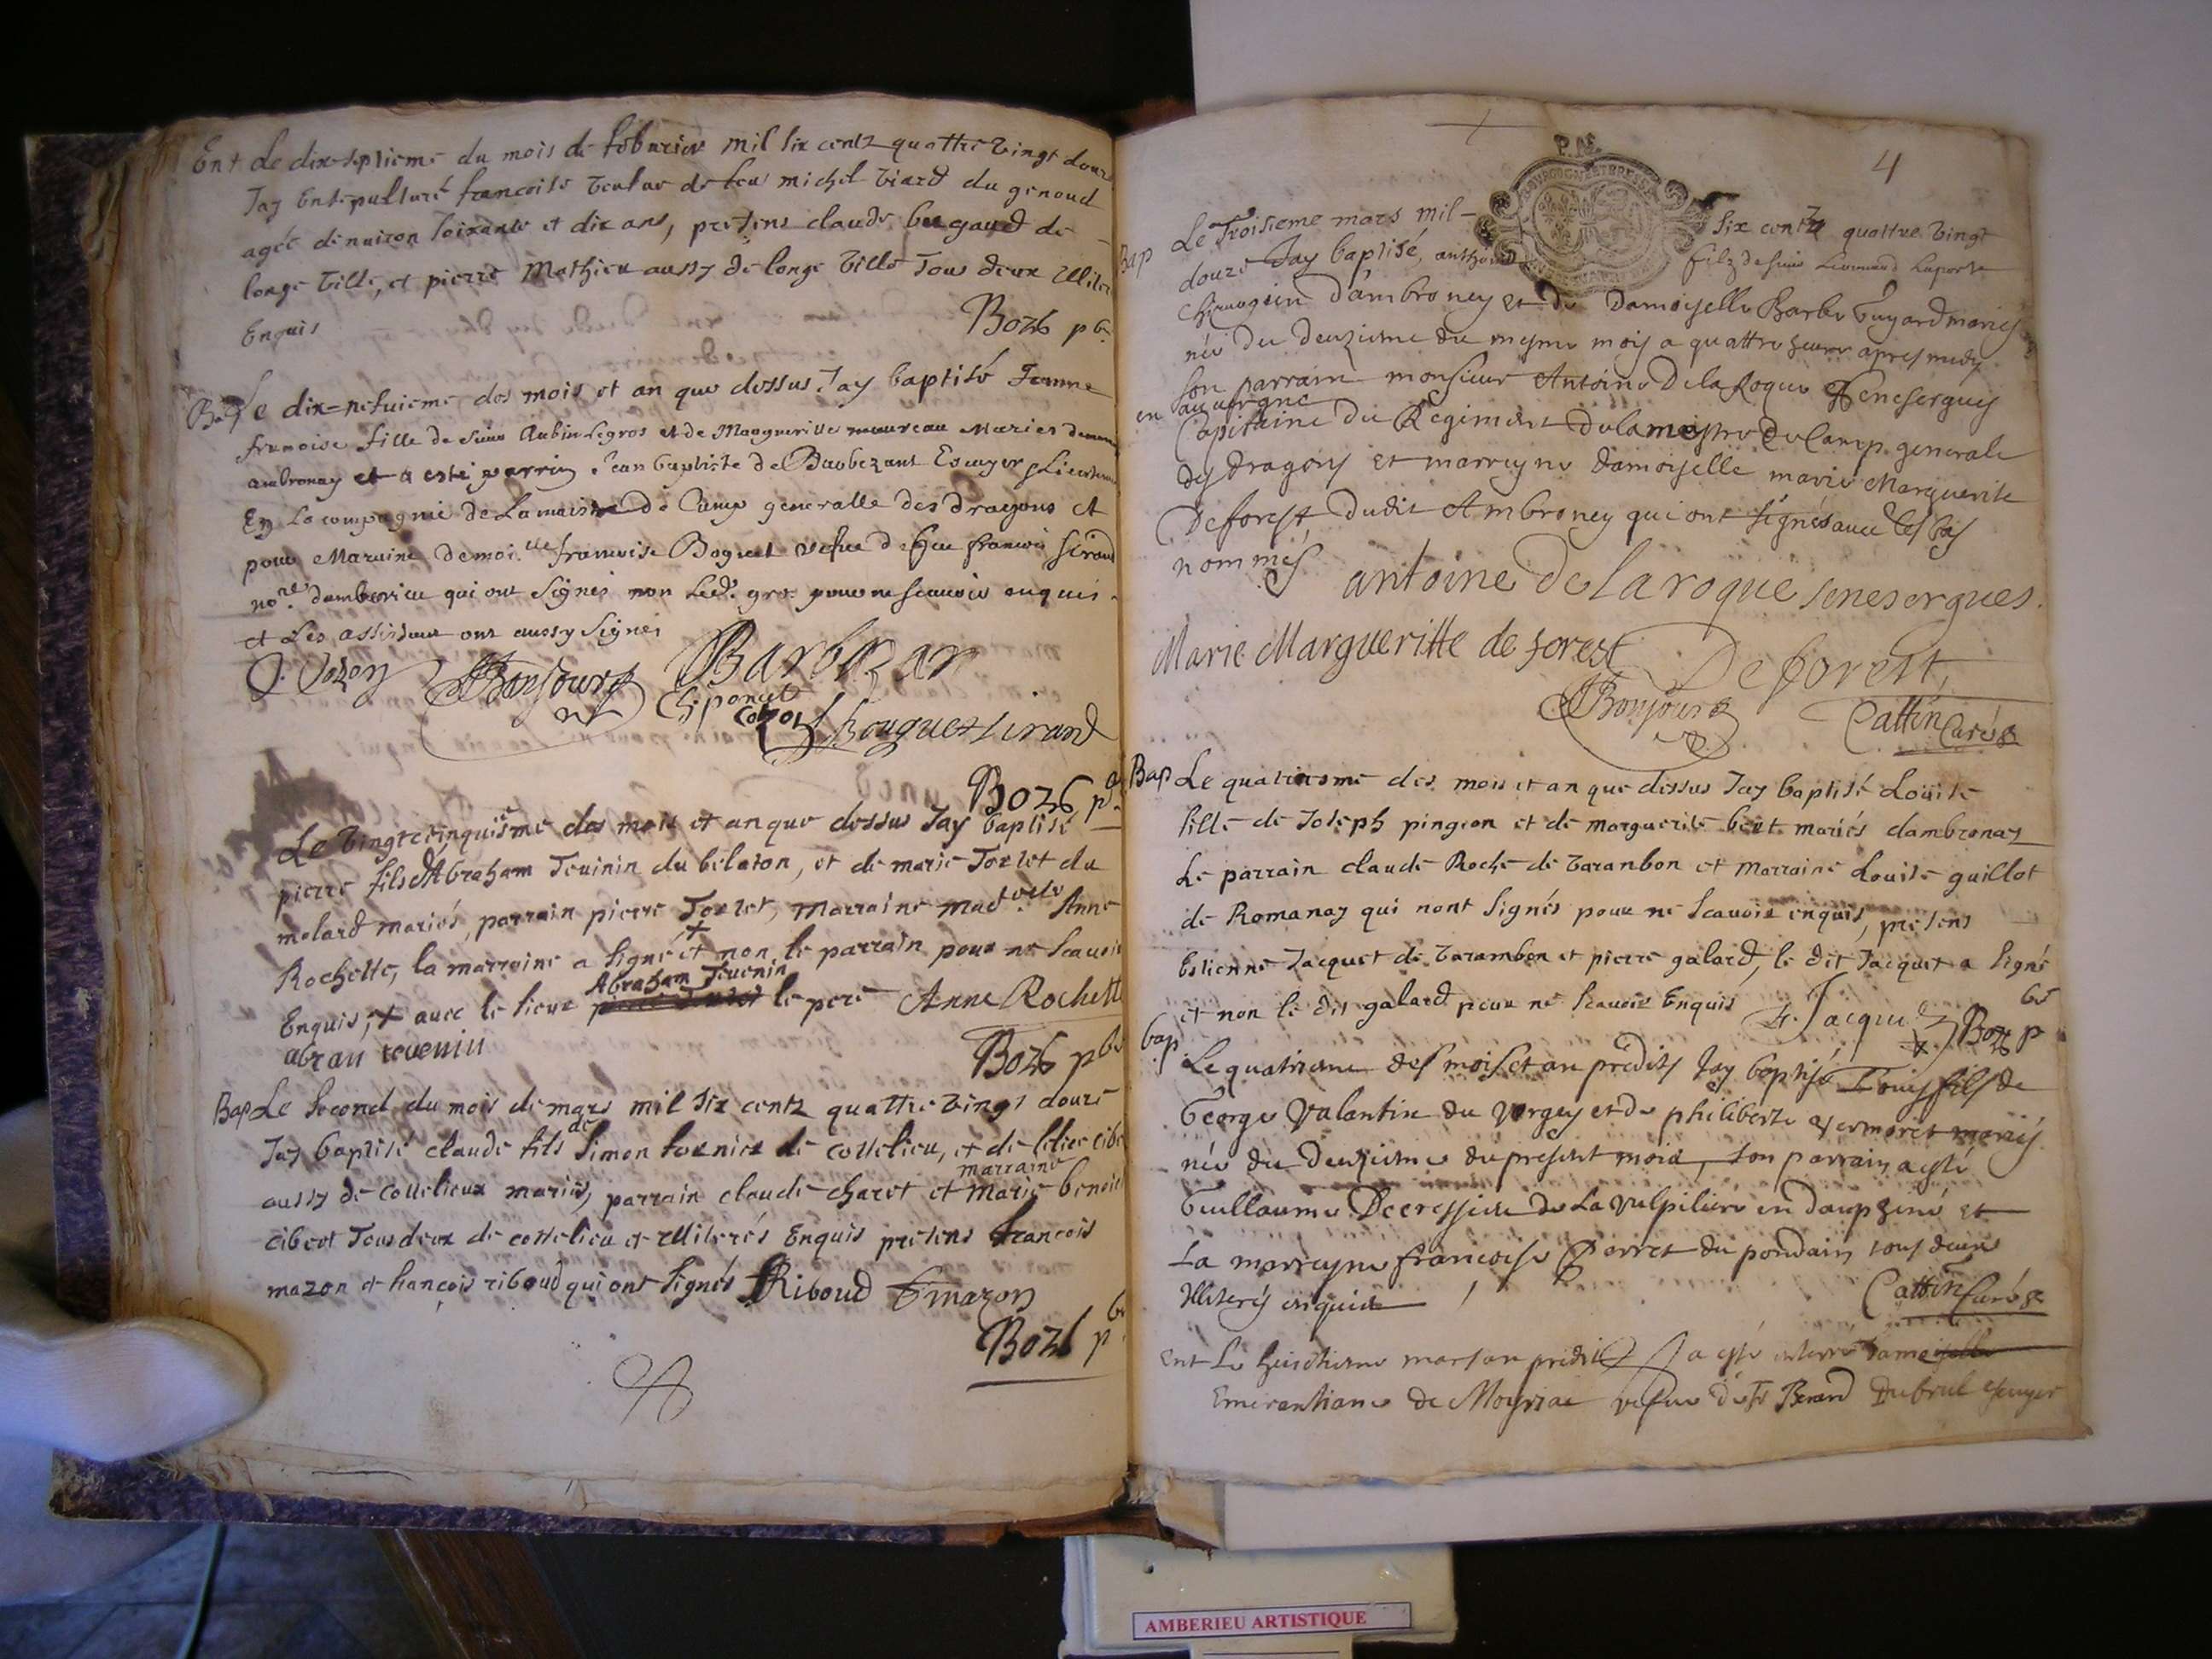 Ent Le dix-septieme du mois de febvrier mil six centz quattre vingt douze
Jay Ensepulturé francoise veufve de feu michel viard du genoud
agée denviron soixante et dix ans, presens claude bugaud de
longe ville, et pierre Mathieu aussy de longe ville Tous deux illiter
Enquis
Bozo pb
Bap Le dix-nefvieme des mois et an que dessus Jay baptisé
francoise fille de sieur Aubin Legros et de Margueritte moureau Mariés
ambronay et a esté parrin Jean baptiste de Barbezant Escuyer Lieuten
En La compagnie de La maistre de Camp generalle des dragons et
pour Maraine demoi.lle francoise Boguet vefve de feu francois sirand
no.re damberieu qui ont signés non Led. gros pour ne scavoir enquis
et Les assistans ont aussy signés
Bonjour
Barbazan
Chiponet
bouguet sirand
Bozo p
Le vingtcinquiesme des mois et an que dessus Jay baptisé
pierre fils d'Abraham Tevinin du belaton, et de marie Torlet du
molard mariés, parrain pierre Torlet, Marraine mad.velle Anne
Rochette, la marraine a signé + et non le parrain pour ne scavoir
Abraham Tevenin
Enquis, + avec le sieur le pere Anne Rochette
abran tevenin
Bozo pbr
Bap Le second du mois de mars mil six centz quattre vingt douze
Jay baptisé claude fils de Simon fornier de cottelieu, et de
marraine
aussy de cottelieux mariés, parrain claude charet et marie benoite
cibeot Tous deux de cottelieu et illiterés Enquis presens francois
mazon et francois riboud qui ont signés Riboud F mazon
Bozo p
P. AE.
4
BOURGOGNE ET BRESSE
Bap Le Troisieme mars mil six centz quattre vingt
douze Jay baptisé, filz de sieur Leonnard Laporte
chirurgein d'ambroney et de Damoyselle Barbe Guyard mariés
née du deuzieme du mesme mois a quattre heure apres midy
son parrain monsieur Antoine Delaroque Seneserguey
en auvergne
Capitaine du Regiment de la mestre de Camp generale
des dragons et marreyne damoyselle marie Marguerite
Deforest dudit Ambroney qui ont signés avec les bas
nommés
antoine de Laroque senesergues
Marie Margueritte de forest
De forest
Bonjour
Cattin Curé
Bap Le quatriesme des mois et an que dessus Jay baptisé Louise
fille de Joseph pingeon et de marguerite bert mariés dambronay
Le parrain claude Roche de varanbon et Marraine Louise guillot
de Romanay qui nont signés pour ne scavoir enquis, presens
Estienne Jacquet de varambon et pierre galard, le dit Jacquet a signé
et non le dit galard pour ne scavoir Enquis
Bozo p
bap
Le quatrieme des mois et an predits Jay baptisé Louis fils de
George Valantin du Vorgey et de philiberte vermoret mariés
née du deuzieme du present mois, son parrain a esté
Guillaume Decressieu de La vulpiliere en daupziné et
La marreyne francoise Perret du pondain tous deux
illiterés enquis
Cattin Curé
Ent Le huictieme mars an predit a esté enterré damoiselle
Emerentiane de Moyriac vefve de Berard Dubreul escuyer
AMBERIEU ARTISTIQUE